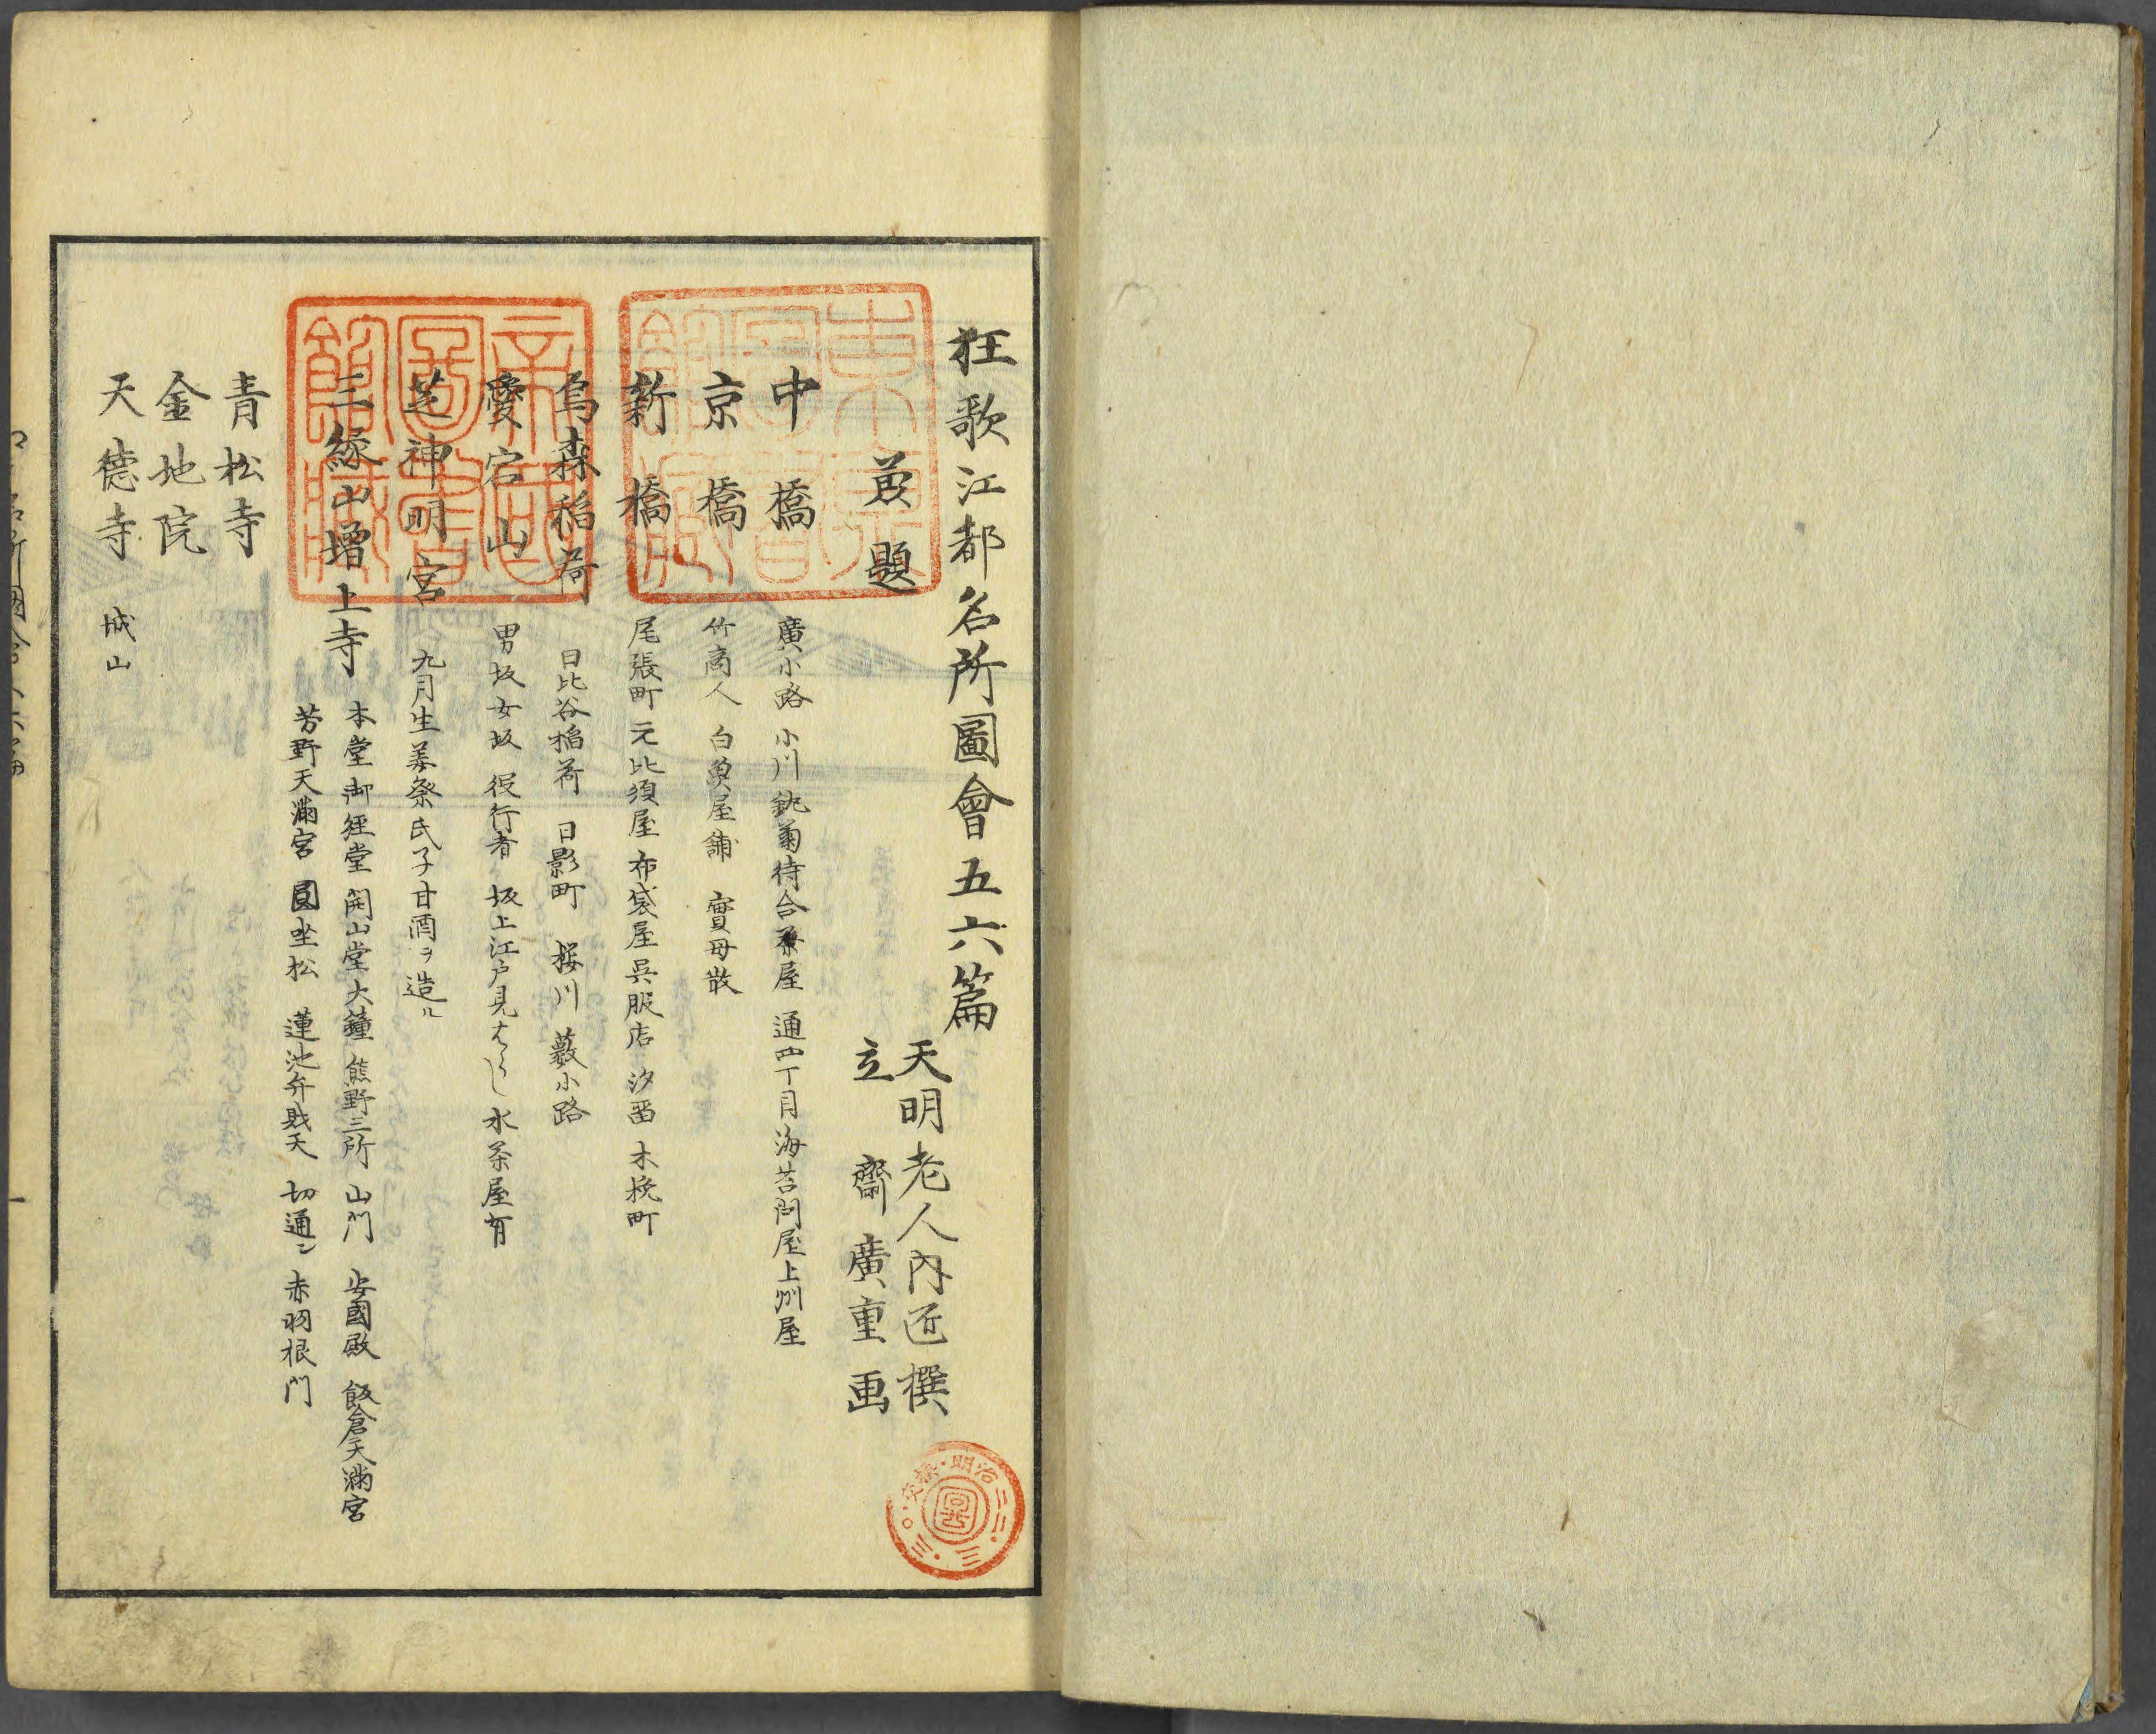 狂歌江都名所圖會五六篇
天明老人內匠撰
立齋廣重画
兼題
中橋 廣小路 小川 菊待合茶屋 通四丁目海苔問屋上州屋
京橋 竹商人 白魚屋舖 實母散
新橋 尾張町 元比須屋 布袋屋呉服店 汐留 木挽町
烏森稲荷 日比谷稲荷 日影町 桜川 藪小路
愛宕山 男坂女坂 役行者 坂上江戸見はらし 水茶屋有
芝神明宮 九月生姜祭氏子甘酒ヲ造ル
三縁山増上寺 本堂御経堂 開山堂 大鐘 熊野三所 山門 安國殿 飯倉天滿宮
芳野天滿宮 圓坐松 蓮池弁財天 切通シ 赤羽根門
青松寺
金地院
天徳寺 城山
東京書籍館臧
帝國圖書館臧
明治二二・三・三〇・交換